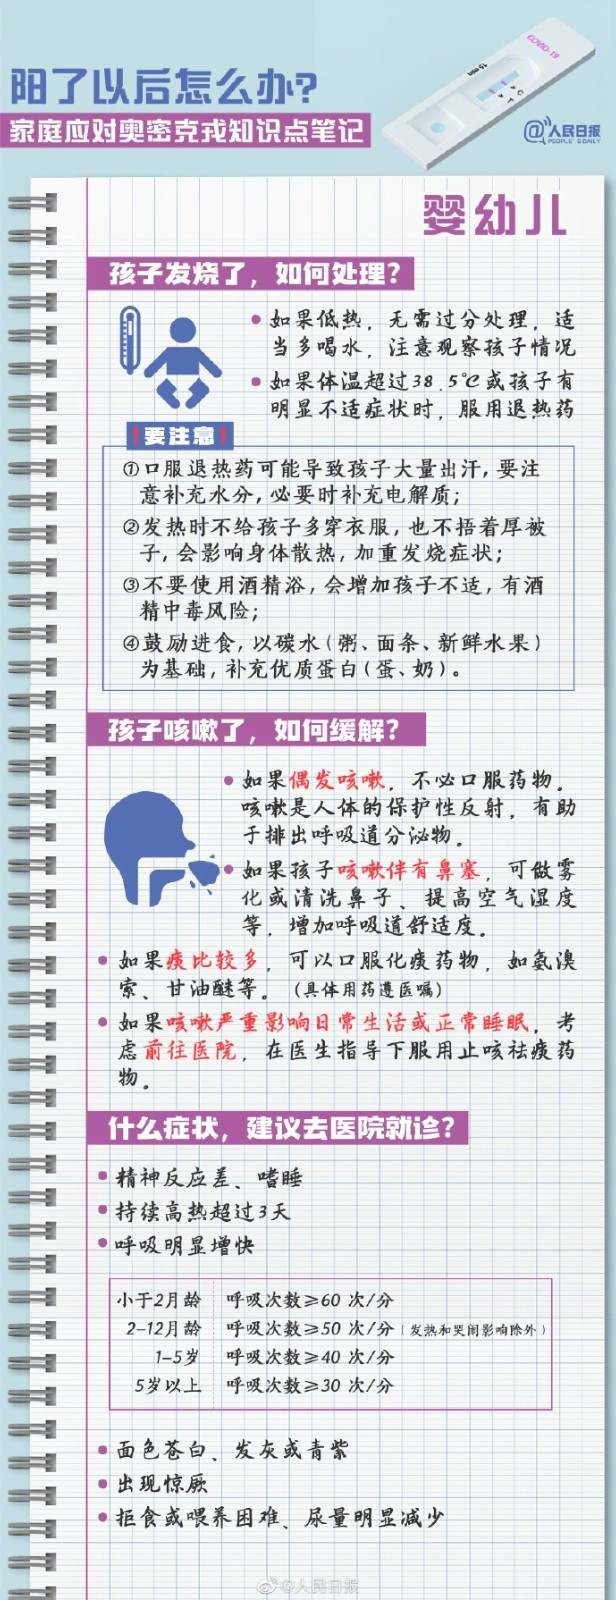 阳了以后怎么办?
家庭应对奥密克戎知识点笔记
COVID-19
15 min
C
T
@人民日报
PEOPLE'S DAILY
婴幼儿
孩子发烧了，如何处理？
如果低热，无需过分处理，适
当多喝水，注意观察孩子情况
如果体温超过38.5℃或孩子有
明显不适症状时，服用退热药
！要注意！
①口服退热药可能导致孩子大量出汗，要注
意补充水分，必要时补充电解质；
②发热时不给孩子多穿衣服，也不捂着厚被
子，会影响身体散热，加重发烧症状；
③不要使用酒精浴，会增加孩子不适，有酒
精中毒风险；
④鼓励进食，以碳水（粥、面条、新鲜水果）
为基础，补充优质蛋白（蛋、奶）。
孩子咳嗽了，如何缓解？
如果偶发咳嗽，不必口服药物。
咳嗽是人体的保护性反射，有助
于排出呼吸道分泌物。
如果孩子咳嗽伴有鼻塞，可做雾
化或清洗鼻子、提高空气湿度
等，增加呼吸道舒适度。
如果痰比较多，可以口服化痰药物，如氨溴
索、甘油醚等。（具体用药遵医嘱）
如果咳嗽严重影响日常生活或正常睡眠，考
虑前往医院，在医生指导下服用止咳祛痰药
物。
什么症状，建议去医院就诊？
精神反应差、嗜睡
持续高热超过3天
呼吸明显增快
小于2月龄 呼吸次数≥60 次/分
2-12月龄 呼吸次数≥50 次/分（发热和哭闹影响除外）
1-5岁 呼吸次数≥40 次/分
5岁以上 呼吸次数≥30 次/分
面色苍白、发灰或青紫
出现惊厥
拒食或喂养困难、尿量明显减少
@人民日报